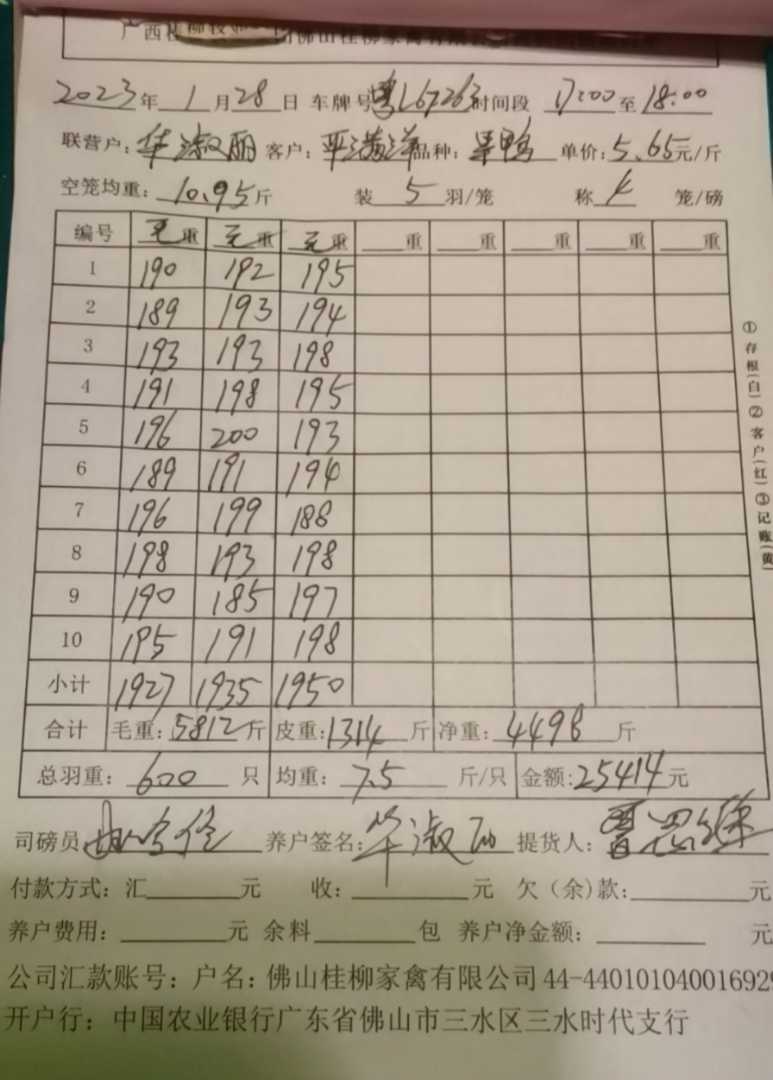 广西桂柳牧 佛山桂柳家禽有限
2023年 1 月 28 日 车牌号粤L67263时间段 17:00至18:00
联营户:华淑丽 客户: 平 洋 品种: 鸭 单价:5.65元/斤
空笼均重:10.95斤 装 5 羽/笼 称 4 笼/磅
编号 毛重 毛重 毛重 重 重 重 重 重
1 190 192 195
2 189 193 194
3 193 193 198
4 191 198 195
5 196 200 193
6 189 191 194
7 196 199 188
8 198 193 198
9 190 185 197
10 195 191 198
小计 1927 1935 1950
合计 毛重:5812斤 皮重:1314斤 净重:4498斤
总羽重:600只 均重:7.5斤/只 金额:25414元
司磅员: 养户签名:华淑丽 提货人:
付款方式:汇 元 收: 元 欠(余)款: 元
养户费用: 元 余料 包 养户净金额: 元
公司汇款账号:户名:佛山桂柳家禽有限公司 44-440101040016929
开户行:中国农业银行广东省佛山市三水区三水时代支行
①存根(白)②客户(红)③记账(黄)